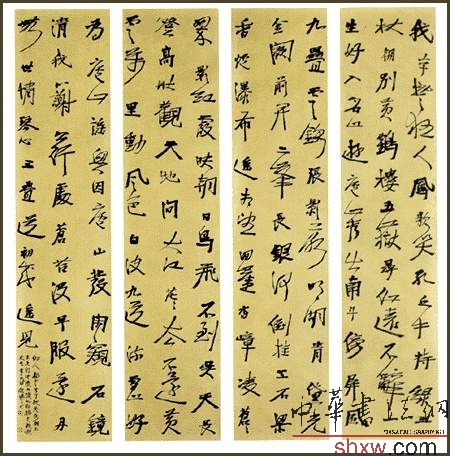 我本楚狂人鳳歌笑孔丘手持綠玉
杖朝別黃鶴樓五嶽尋仙遠不辭
生好入名山遊廬山秀出南斗傍屏風
九疊雲錦張影落明湖青黛光
金闕前開二峰長銀河倒挂三石梁
香爐瀑布遙相望回崖沓嶂凌蒼
翠影紅霞映朝日鳥飛不到吳天長
登高壯觀天地間大江茫茫去不還黃
雲萬里動風色白波九道流雪山好
為廬山謠興因廬山發閑窺石鏡
清我心謝公行處蒼苔沒早服還丹
無世情琴心三疊道初成遙見
中華書法網
shxw.com